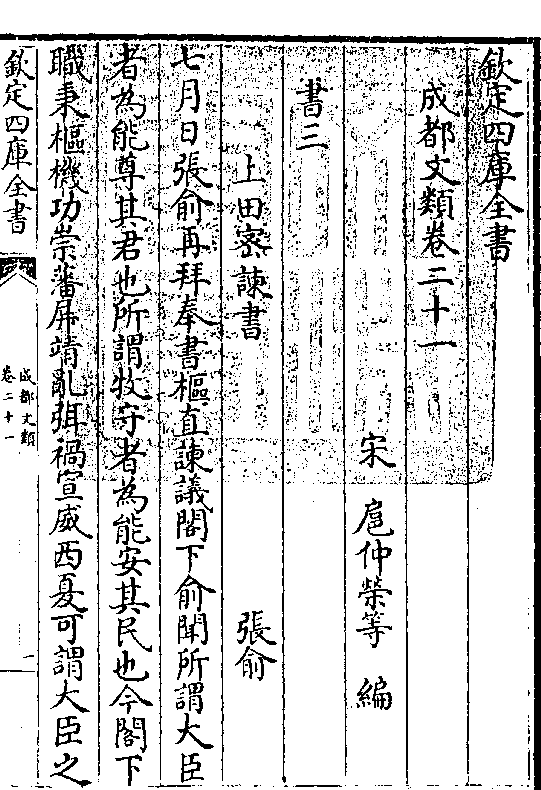 欽定四庫全書
成都文類卷二十一
宋 扈仲榮等 編
書三
上田密諫書 張俞
七月日張俞再拜奉書樞直諫議閣下俞聞所謂大臣
者為能尊其君也所謂牧守者為能安其民也今閣下
職秉樞機功崇藩屏靖亂弭禍宣威西夏可謂大臣之
欽定四庫全書
成都文類
卷二十一
一